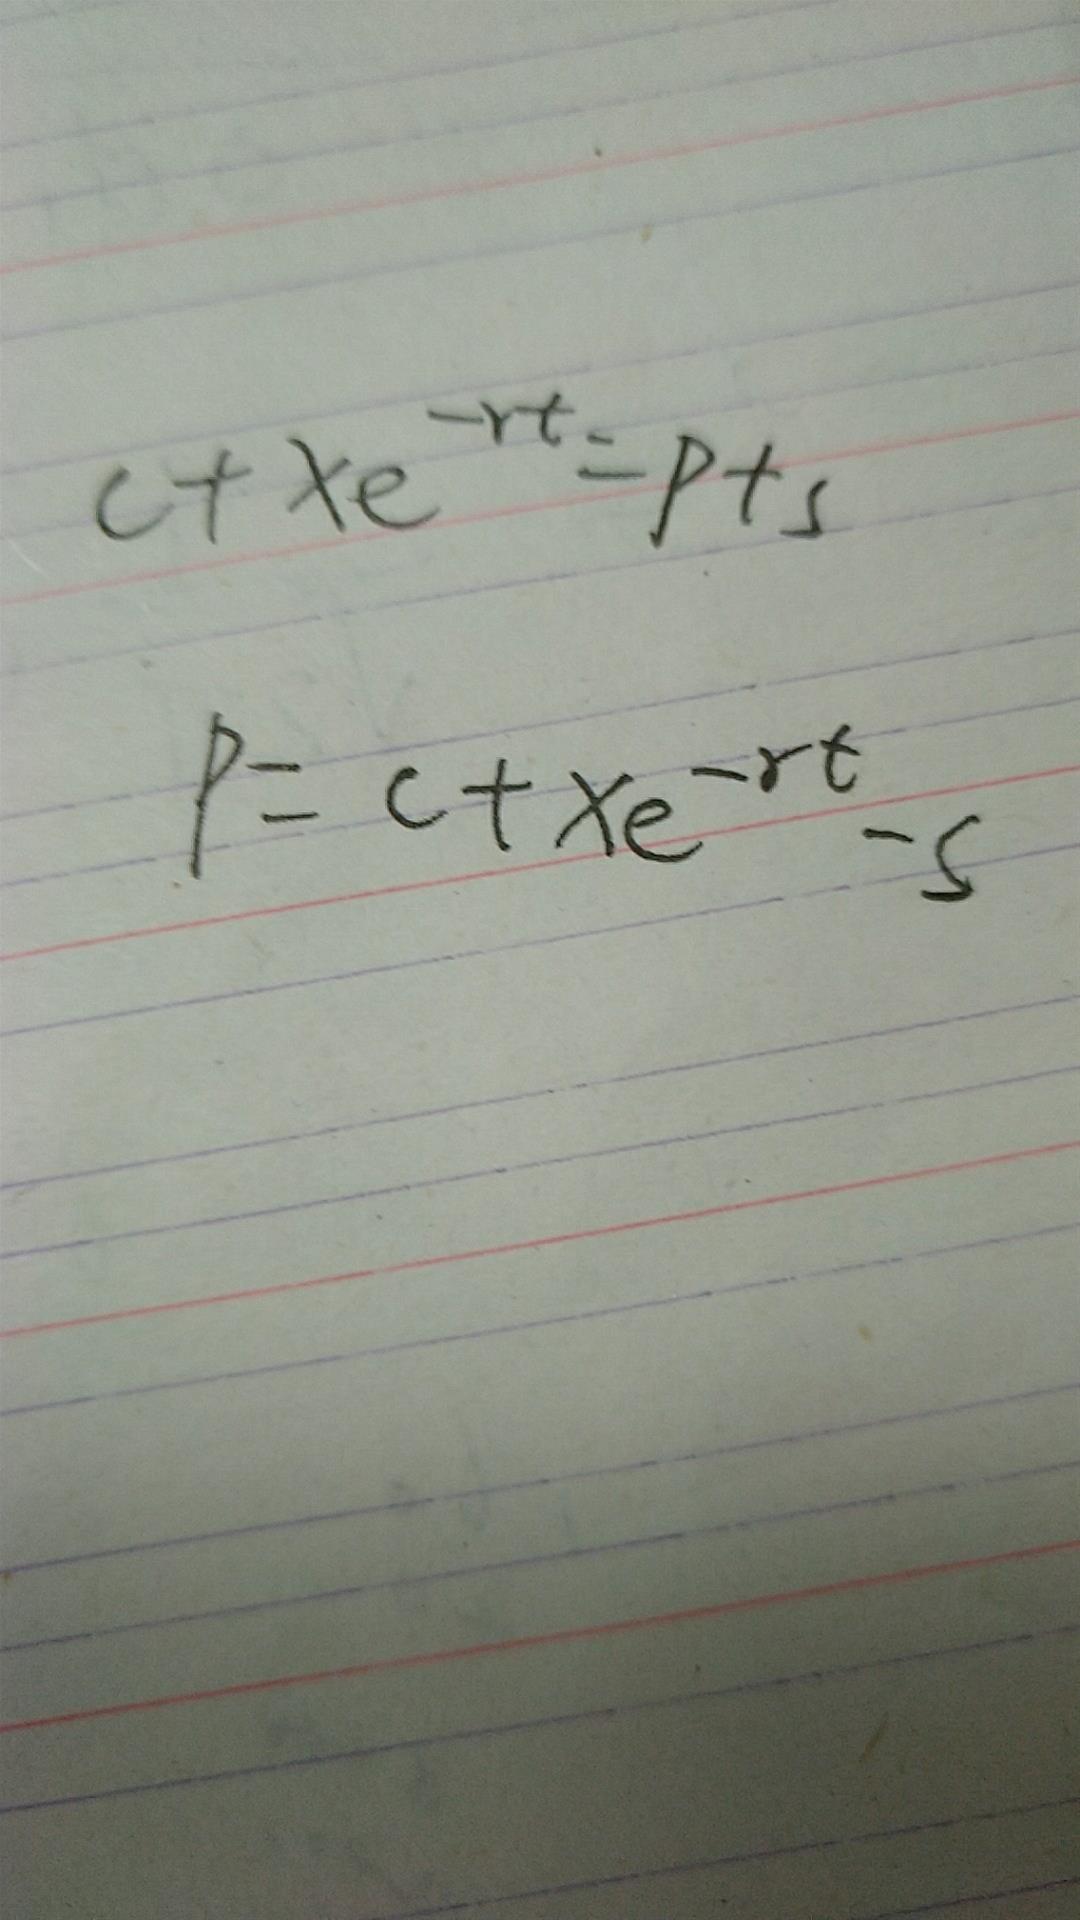 c+xe^{-rt}=p+s
p=c+xe^{-rt}-s